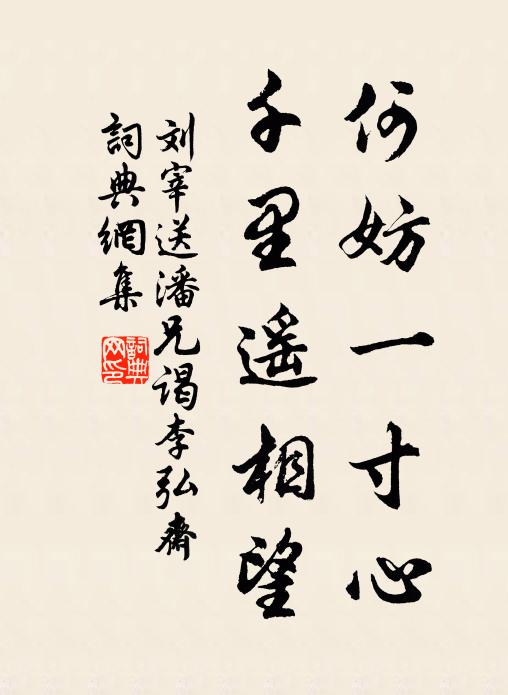 何妨一寸心
千里遥相望
刘宰送潘兄谒李弘斋
詞典網集
詞典
网印